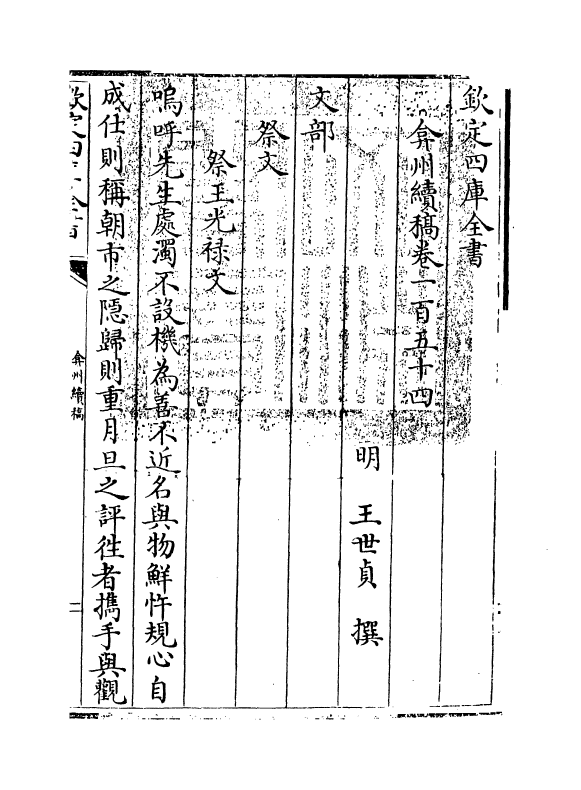 欽定四庫全書
弇州續稿卷一百五十四
明 王世貞 撰
文部
祭文
祭王光禄文
嗚呼先生處濁不設機為善不近名與物鮮忤規心自
成仕則稱朝市之隠歸則重月旦之評徃者攜手與觀
欽定四庫全書
弇州續稿